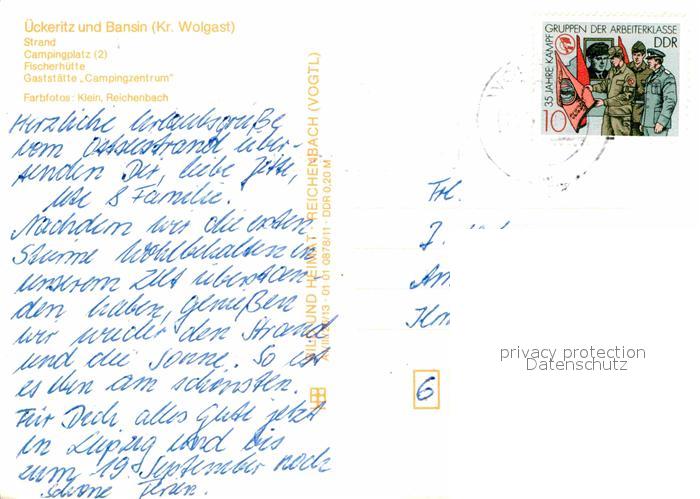 Ückeritz und Bansin (Kr. Wolgast)
Strand
Campingplatz (2)
Fischerhütte
Gaststätte „Campingzentrum"
Farbfotos: Klein, Reichenbach
Herzliche Urlaubsgrüße
vom Ostseestrand über-
senden Dir, liebe
Ute & Familie.
Nachdem wir die ersten
Stürme wohlbehalten in
unserem Zelt überstan-
den haben, genießen
wir wieder den Strand
und die Sonne. So ist
es eben am schönsten.
Für Dich alles Gute jetzt
in Leipzig und bis
zum 19. September noch
schöne Ferien.
BILD UND HEIMAT · REICHENBACH (VOGTL)
01 01 0878/11 · DDR 0,20 M
35 JAHRE KAMPFGRUPPEN DER ARBEITERKLASSE
DDR
10
Frl.
J.
Am
6
privacy protection
Datenschutz